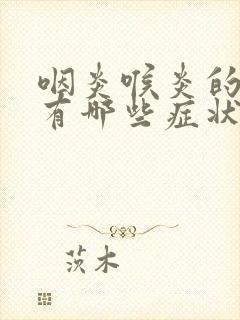 咽炎喉炎的
有哪些症状
茨木